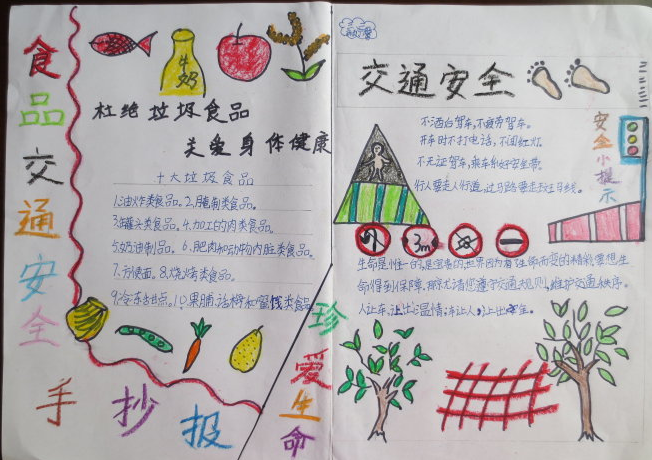 食品交通安全
手抄报
牛奶
杜绝垃圾食品
关爱身体健康
十大垃圾食品
1.油炸类食品。2.腌制类食品。
3.罐头类食品。4.加工的肉类食品。
5.奶油制品。6.肥肉和动物内脏类食品。
7.方便面。8.烧烤类食品。
9.冷冻甜点。10.果脯、话梅和蜜饯类食品
珍爱生命
交通安全
不酒后驾车,不疲劳驾车。
开车时不打电话,不闯红灯。
不无证驾车,乘车系好安全带。
行人要走人行道,过马路要走斑马线。
安全小提示
3m
生命是惟一的,是宝贵的,世界因为有生命而变的精彩,要想生
命得到保障,那就请您遵守交通规则,维护交通秩序。
人让车,让出温情;车让人,让出安全。